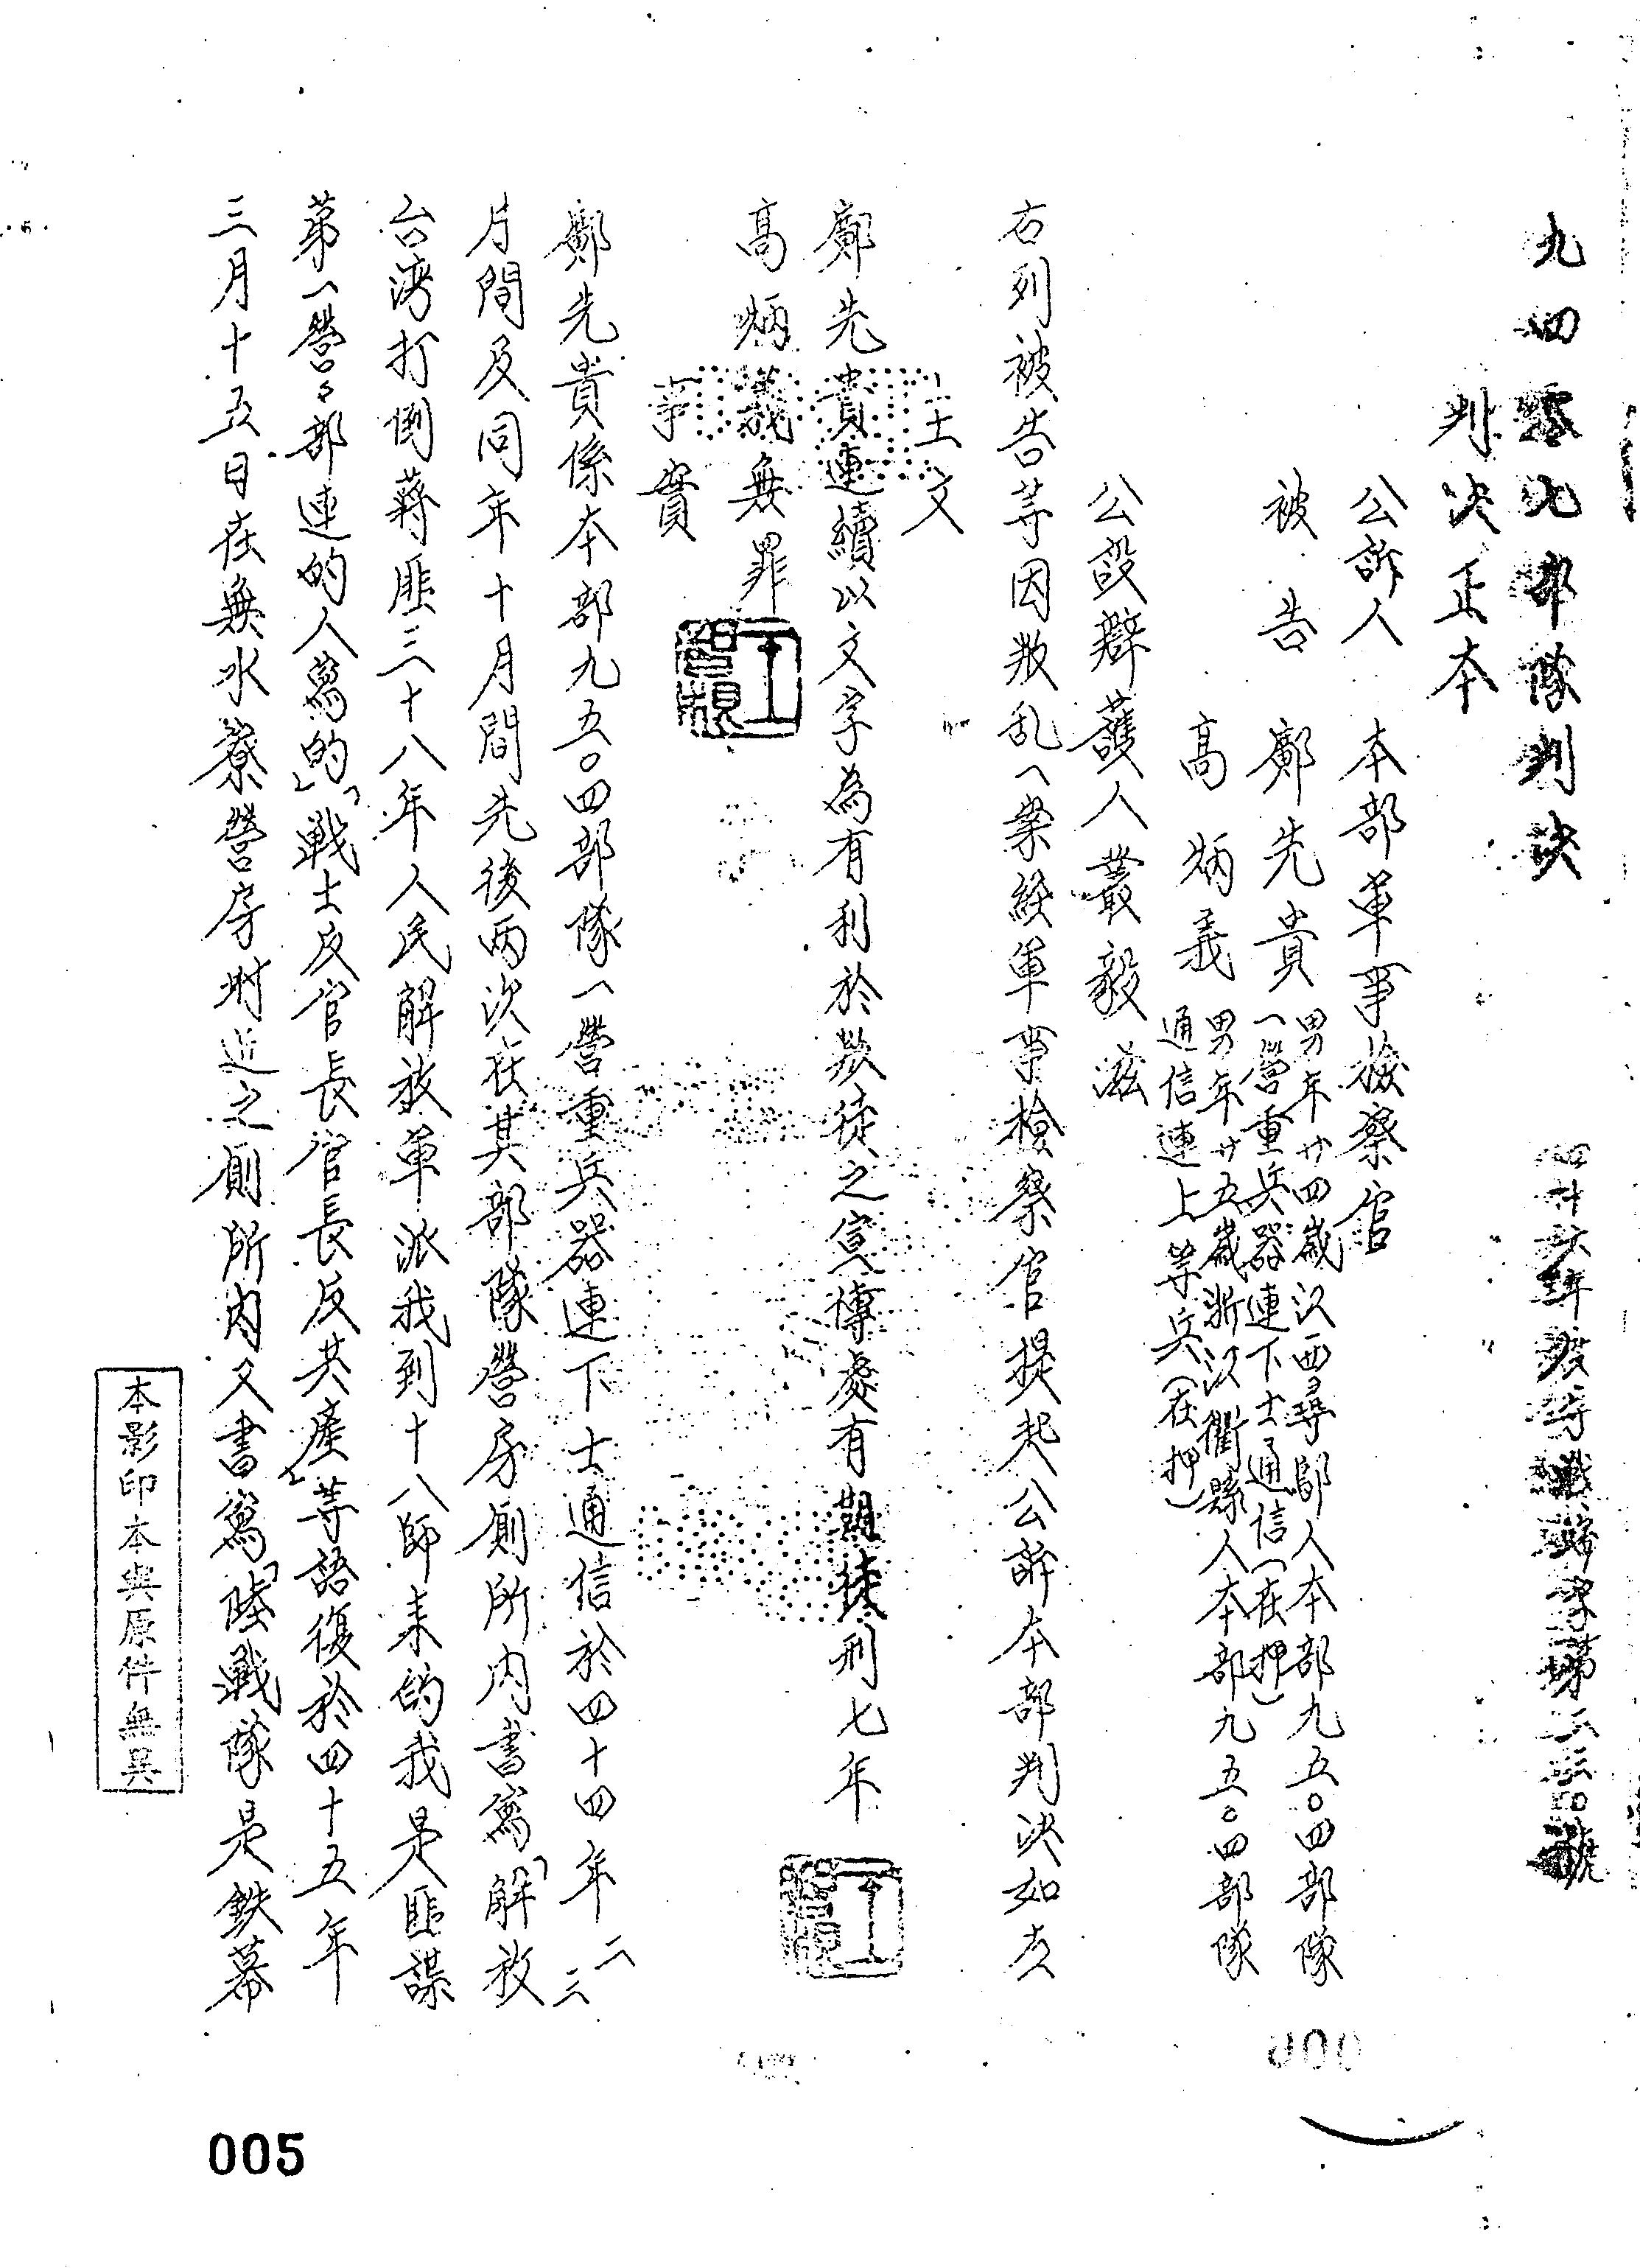 九四零七部隊判決
判決正本
公訴人 本部軍事檢察官
被告 鄺先貴 男年廿四歲江西尋鄔人本部九五〇四部隊
一營重兵器連下士通信(在押)
高炳義 男年廿五歲浙江衢縣人本部九五〇四部隊
通信連上等兵(在押)
公設辯護人叢毅滋
右列被告等因叛乱一案經軍事檢察官提起公訴本部判決如左
主文
鄺先貴連續以文字為有利於叛徒之宣傳處有期徒刑七年
高炳義無罪
事實
鄺先貴係本部九五〇四部隊一營重兵器連下士通信於四十四年二三
月間及同年十月間先後兩次在其部隊營房側所內書寫「解放
台湾打倒蔣匪三十八年人民解放軍派我到十八師来的我是匪諜
第一營々部連的人寫的」「戰士反官長官長反共產」等語復於四十五年
三月十五日在無水寮營房附近之廁所內又書寫「陸戰隊是鉄幕
本影印本與原件無異
005